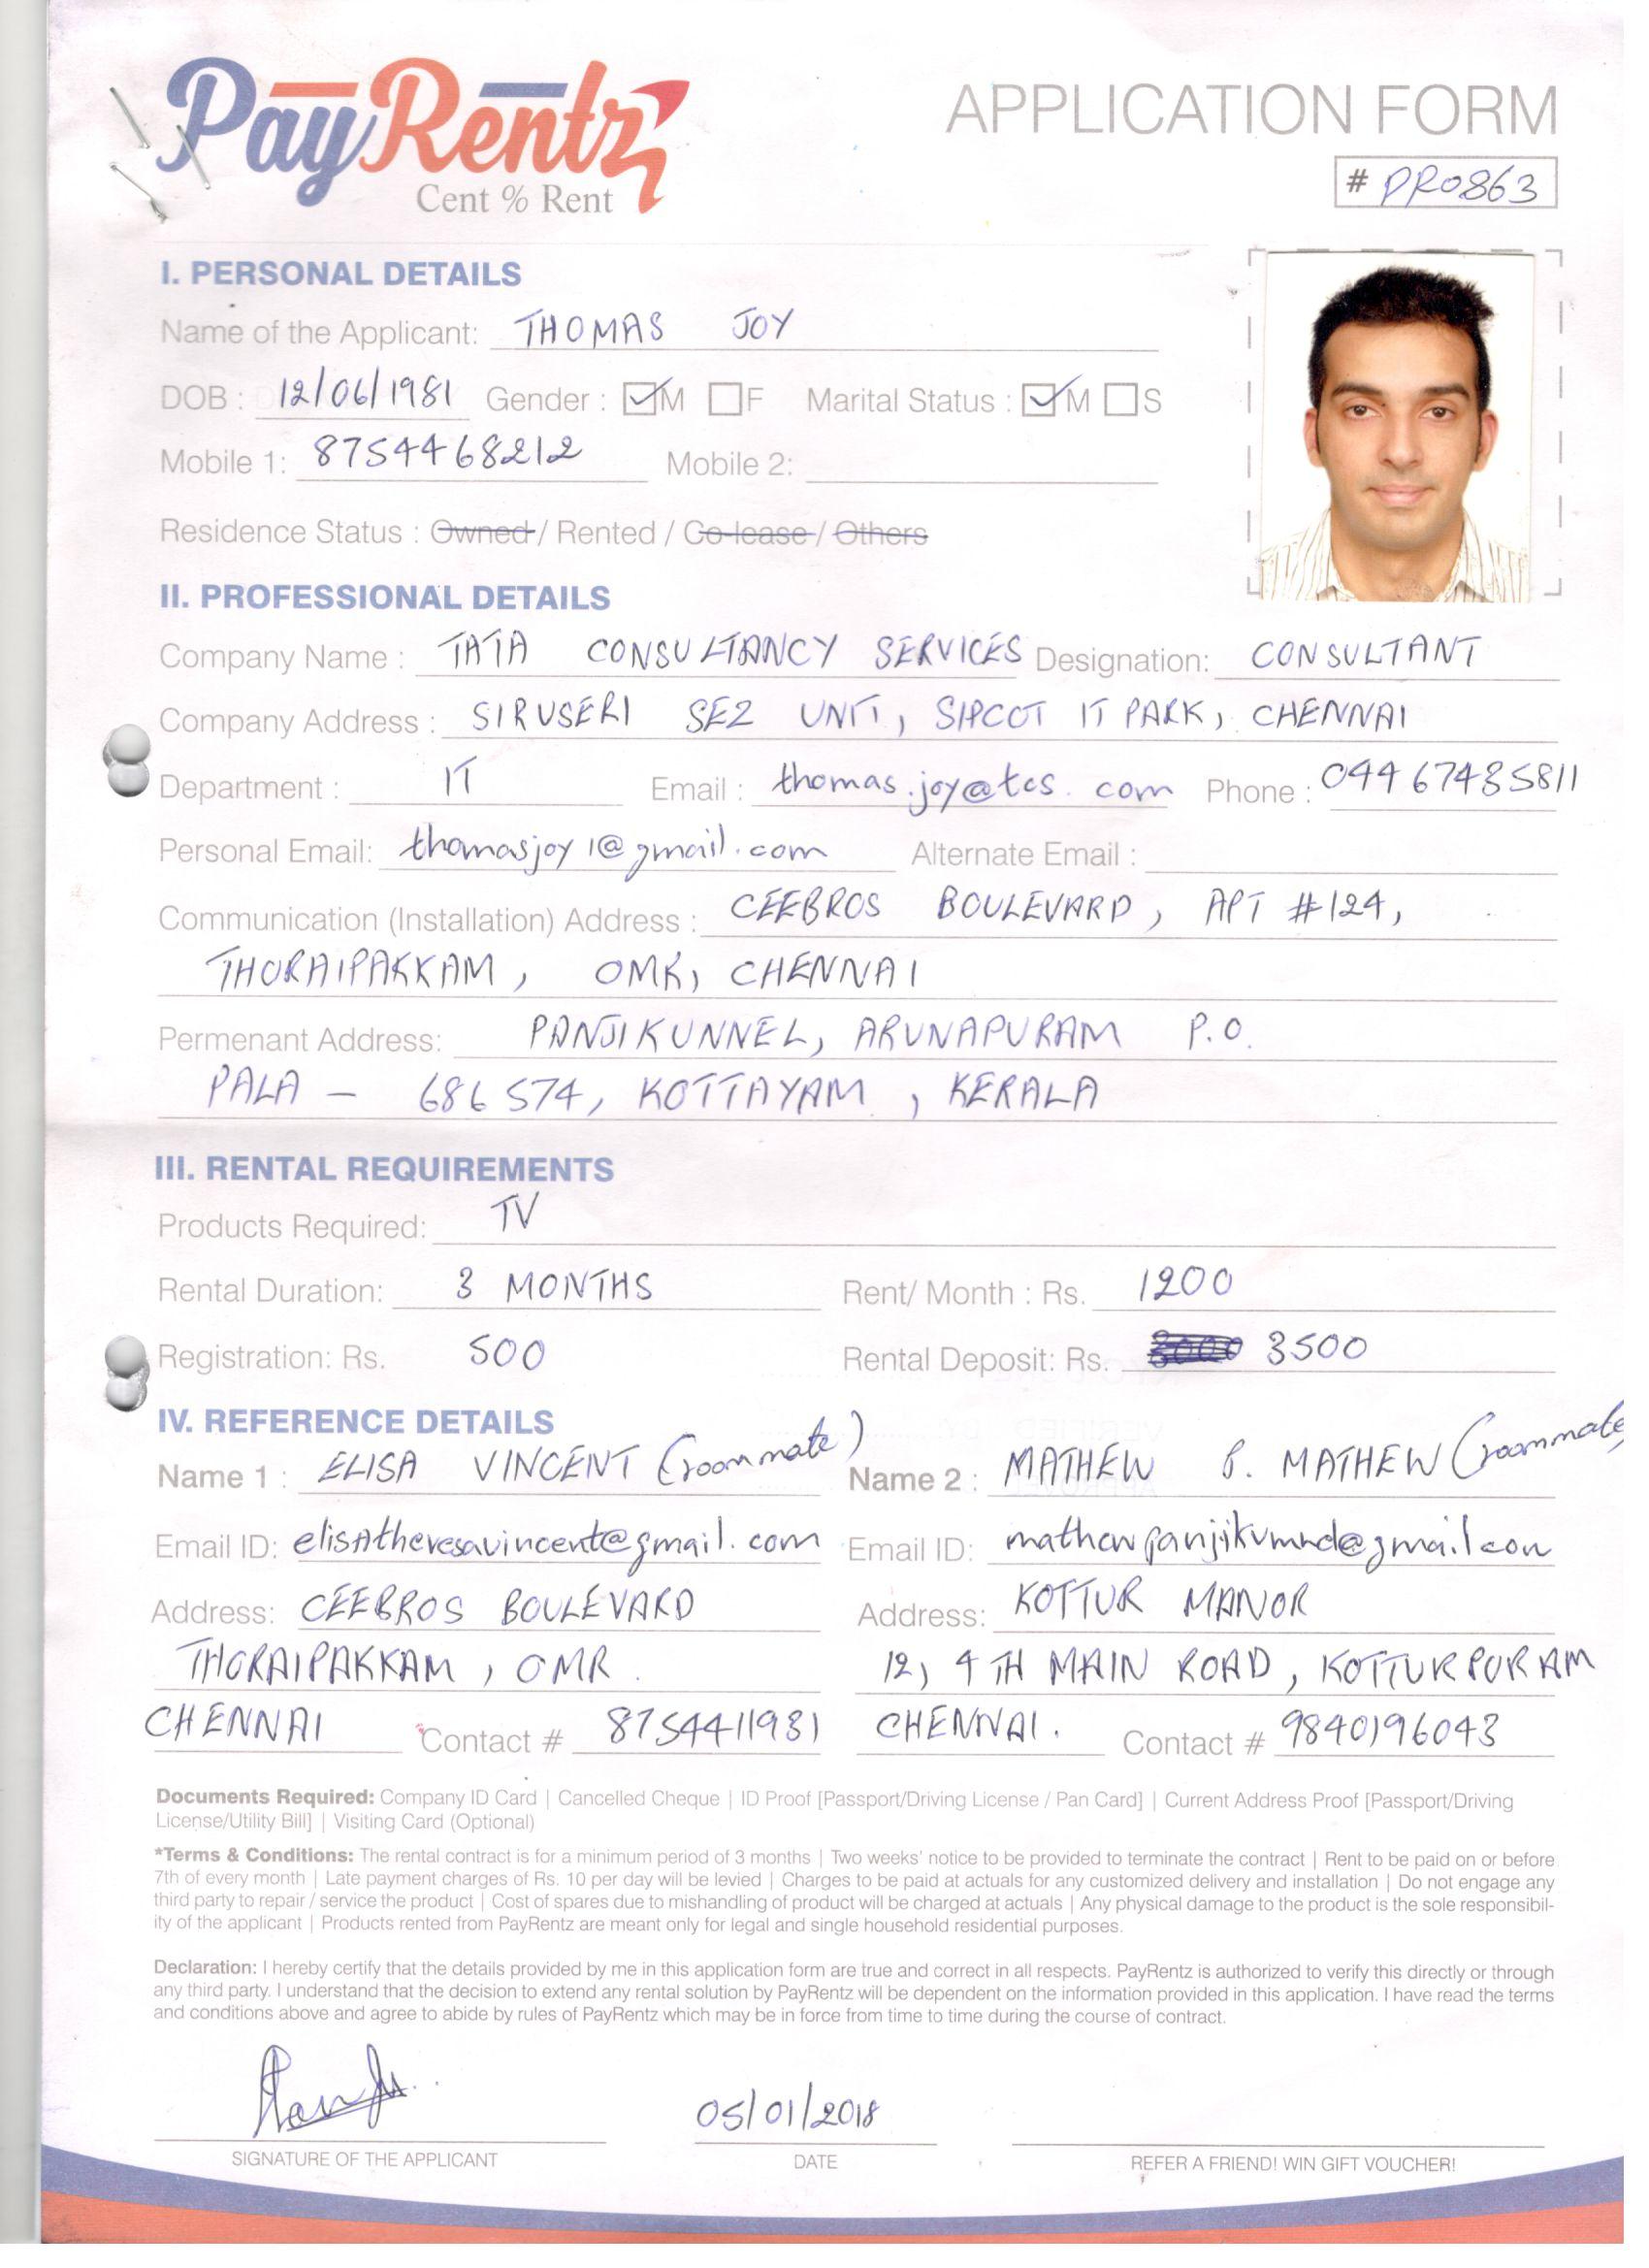 PayRentz
Cent % Rent
APPLICATION FORM
# PR0863
I. PERSONAL DETAILS
Name of the Applicant: THOMAS JOY
DOB : 12/06/1981 Gender : M F Marital Status : M S
Mobile 1: 8754468212 Mobile 2:
Residence Status : Owned / Rented / Co-lease / Others
II. PROFESSIONAL DETAILS
Company Name : TATA CONSULTANCY SERVICES Designation: CONSULTANT
Company Address : SIRUSERI SEZ UNIT, SIPCOT IT PARK, CHENNAI
Department : IT Email : thomas.joy@tcs.com Phone : 044 67435811
Personal Email: thomasjoy1@gmail.com Alternate Email :
Communication (Installation) Address : CEEBROS BOULEVARD, APT #124,
THORAIPAKKAM, OMR, CHENNAI
Permenant Address: PANJIKUNNEL, ARUNAPURAM P.O.
PALA - 686574, KOTTAYAM, KERALA
III. RENTAL REQUIREMENTS
Products Required: TV
Rental Duration: 3 MONTHS Rent/ Month : Rs. 1200
Registration: Rs. 500 Rental Deposit: Rs. 3500
IV. REFERENCE DETAILS
Name 1 : ELISA VINCENT (roommate) Name 2 : MATHEW P. MATHEW (roommate)
Email ID: elisatheresavincent@gmail.com Email ID:
Address: CEEBROS BOULEVARD Address: KOTTUR MANOR
THORAIPAKKAM, OMR. 12, 4TH MAIN ROAD, KOTTURPURAM
CHENNAI Contact # 8754411931 CHENNAI. Contact # 9840196043
Documents Required: Company ID Card | Cancelled Cheque | ID Proof [Passport/Driving License / Pan Card] | Current Address Proof [Passport/Driving
License/Utility Bill] | Visiting Card (Optional)
*Terms & Conditions: The rental contract is for a minimum period of 3 months | Two weeks' notice to be provided to terminate the contract | Rent to be paid on or before
7th of every month | Late payment charges of Rs. 10 per day will be levied | Charges to be paid at actuals for any customized delivery and installation | Do not engage any
third party to repair / service the product | Cost of spares due to mishandling of product will be charged at actuals | Any physical damage to the product is the sole responsibil-
ity of the applicant | Products rented from PayRentz are meant only for legal and single household residential purposes.
Declaration: I hereby certify that the details provided by me in this application form are true and correct in all respects. PayRentz is authorized to verify this directly or through
any third party. I understand that the decision to extend any rental solution by PayRentz will be dependent on the information provided in this application. I have read the terms
and conditions above and agree to abide by rules of PayRentz which may be in force from time to time during the course of contract.
05/01/2018
SIGNATURE OF THE APPLICANT DATE REFER A FRIEND! WIN GIFT VOUCHER!